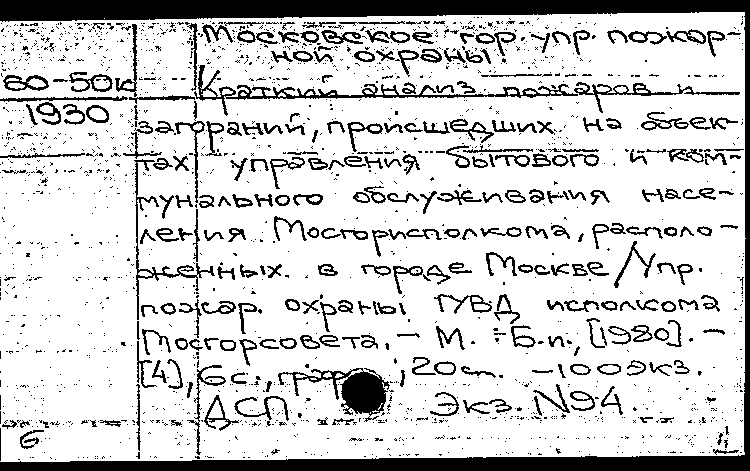 Московское гор. упр. пожар-
ной охраны.
60-50к
Краткий анализ пожаров и
1930
загораний, происшедших на объек-
тах управления бытового и ком-
мунального обслуживания насе-
ления Мосгорисполкома, располо-
женных в городе Москве / Упр.
пожар. охраны ГУВД исполкома
Мосгорсовета. - М. : Б.и., [1980]. -
[4], 6 с., граф ; 20 см. - 100 экз.
ДСП. Экз. №94.
б